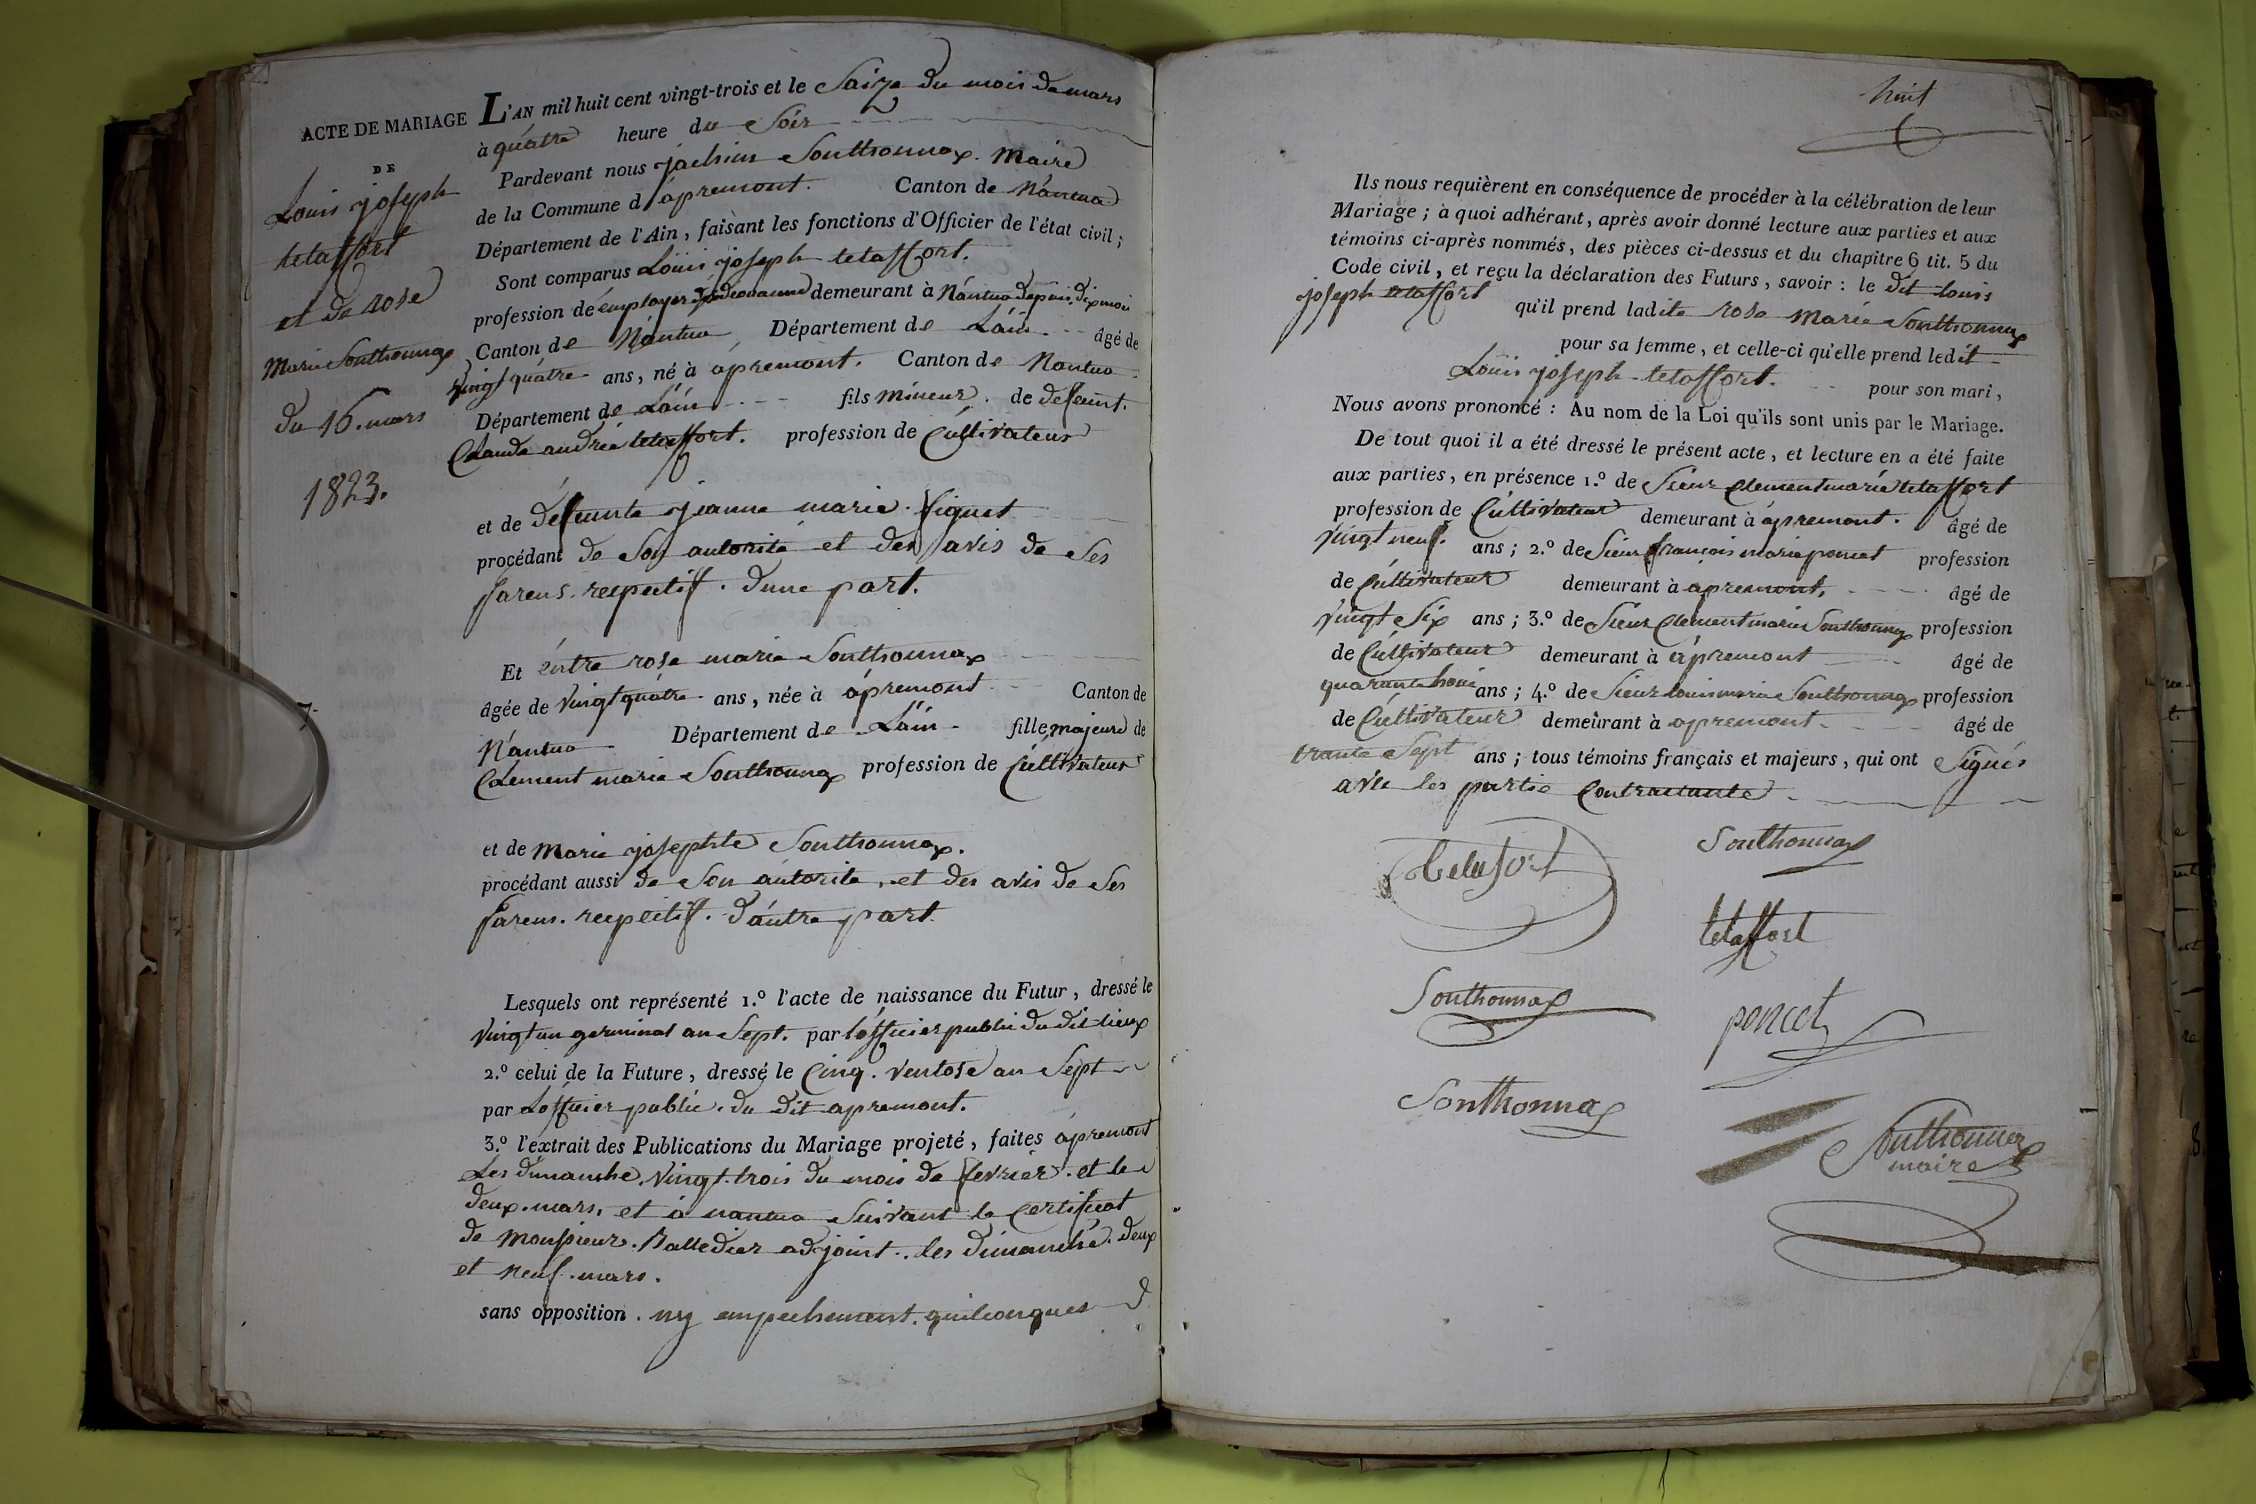 ACTE DE MARIAGE
DE
Louis joseph
tetaffort
et de rose
Marie Sonthonnax
du 16. mars
1823.
L'AN mil huit cent vingt-trois et le Saize du mois de mars
à quatre heure du Soir
Pardevant nous Sonthonnax. Maire
de la Commune d'apremont. Canton de Nantua
Département de l'Ain, faisant les fonctions d'Officier de l'état civil;
Sont comparus Loüis joseph tetaffort.
profession de employer demeurant à Nantua depuis dix mois
Canton de Nantua, Département de Láin âgé de
vingt quatre ans, né à apremont. Canton de Nantua
Département de Láin fils mineur. de defeunt.
Claude andrée tetaffort. profession de Cultivateur
et de défeunte jeanne marie figuet
procédant de Son autorité et des avis de Ses
parens. respectif. d'une part.
Et éntre rose marie Sonthonnax
âgée de Vingt quatre ans, née à ápremont Canton de
Nantua Département de Láin fille majeure de
Clement marie Sonthonnax profession de Cultivateur
et de Marie josephte Sonthonnax.
procédant aussi de Son autorité, et des avis de Ses
parens. recpectif. d'áutre part
Lesquels ont représenté 1.º l'acte de naissance du Futur, dressé le
vingt un germinal an Sept. par lófficier public du dit lieux
2.º celui de la Future, dressé le Cinq. ventose an Sept
par Lófficier public. du dit apremont.
3.º l'extrait des Publications du Mariage projeté, faites ápremont
Les dimanche. Vingt-trois du mois de fevrier. et le
deux. mars, et á nantua Suivant le Certificat
de Monsieur. Balledier adjoint.. les dimanche. deux
et neuf. mars.
sans opposition. ny empechement. quilconques
huit
Ils nous requièrent en conséquence de procéder à la célébration de leur
Mariage; à quoi adhérant, après avoir donné lecture aux parties et aux
témoins ci-après nommés, des pièces ci-dessus et du chapitre 6 tit. 5 du
Code civil, et reçu la déclaration des Futurs, savoir: le dit louis
joseph tetaffort qu'il prend ladite rose Marie Sonthonnax
pour sa femme, et celle-ci qu'elle prend ledit
Loüis joseph tetaffort. pour son mari,
Nous avons prononcé: Au nom de la Loi qu'ils sont unis par le Mariage.
De tout quoi il a été dressé le présent acte, et lecture en a été faite
aux parties, en présence 1.º de Sieur Clement marie tetaffort
profession de Cultivateur demeurant à ápremont. âgé de
vingt neuf. ans; 2.º de Sieur françois marie poncet profession
de Cultivateur demeurant à apremont. âgé de
vingt Six ans; 3.º de Sieur Clement marie Sonthonnax profession
de Cultivateur demeurant à ápremont âgé de
quarante ans; 4.º de Sieur louis marie Sonthonnax profession
de Cultivateur demeurant à apremont âgé de
trante Sept ans; tous témoins français et majeurs, qui ont Signés
avec les partie Contractante
tetafort
Sonthonnax
tetaffort
Sonthonnax
poncet
Sonthonnax
Sonthonnax
maire